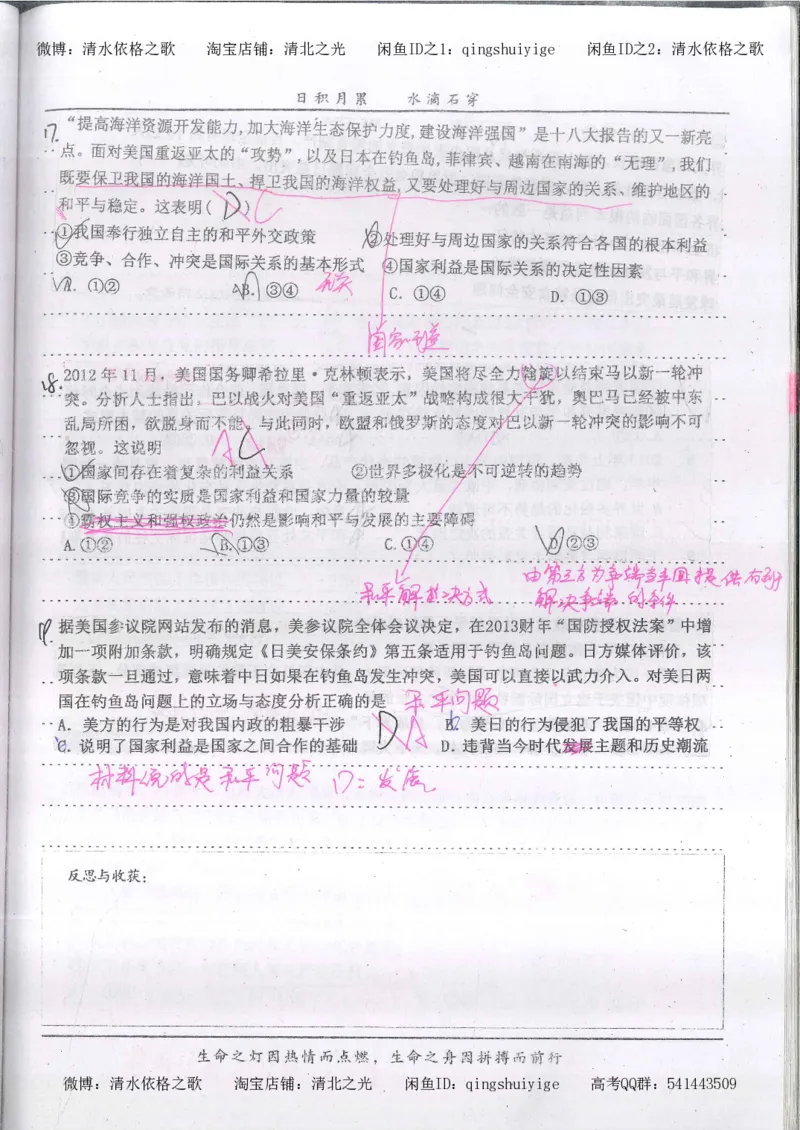 微博：清水依格之歌 淘宝店铺：清北之光 闲鱼ID之1：qingshuiyige 闲鱼ID之2：清水依格之歌
日积月累 水滴石穿
17. “提高海洋资源开发能力,加大海洋生态保护力度,建设海洋强国”是十八大报告的又一新亮
点。面对美国重返亚太的“攻势”,以及日本在钓鱼岛,菲律宾、越南在南海的“无理”,我们
既要保卫我国的海洋国土、捍卫我国的海洋权益,又要处理好与周边国家的关系、维护地区的
和平与稳定。这表明( D ) C
①我国奉行独立自主的和平外交政策 ②处理好与周边国家的关系符合各国的根本利益
③竞争、合作、冲突是国际关系的基本形式 ④国家利益是国际关系的决定性因素
A. ①② B. ③④ C. ①④ D. ①③
国家利益
18. 2012年11月，美国国务卿希拉里·克林顿表示，美国将尽全力斡旋以结束马以新一轮冲
突。分析人士指出，巴以战火对美国“重返亚太”战略构成很大干扰，奥巴马已经被中东
乱局所困，欲脱身而不能。与此同时，欧盟和俄罗斯的态度对巴以新一轮冲突的影响不可
忽视。这说明 A C
①国家间存在着复杂的利益关系 ②世界多极化是不可逆转的趋势
③国际竞争的实质是国家利益和国家力量的较量
④霸权主义和强权政治仍然是影响和平与发展的主要障碍
A. ①② B. ①③ C. ①④ D. ②③
由第三方为争端当事国提供有利
和平解决方式 解决争端的条件
19. 据美国参议院网站发布的消息，美参议院全体会议决定，在2013财年“国防授权法案”中增
加一项附加条款，明确规定《日美安保条约》第五条适用于钓鱼岛问题。日方媒体评价，该
项条款一旦通过，意味着中日如果在钓鱼岛发生冲突，美国可以直接以武力介入。对美日两
国在钓鱼岛问题上的立场与态度分析正确的是 和平问题
A. 美方的行为是对我国内政的粗暴干涉 D A B. 美日的行为侵犯了我国的平等权
C. 说明了国家利益是国家之间合作的基础 D. 违背当今时代发展主题和历史潮流
材料说的是和平问题 D：发展
反思与收获：
生命之灯因热情而点燃，生命之舟因拼搏而前行
微博：清水依格之歌 淘宝店铺：清北之光 闲鱼ID：qingshuiyige 高考QQ群：541443509